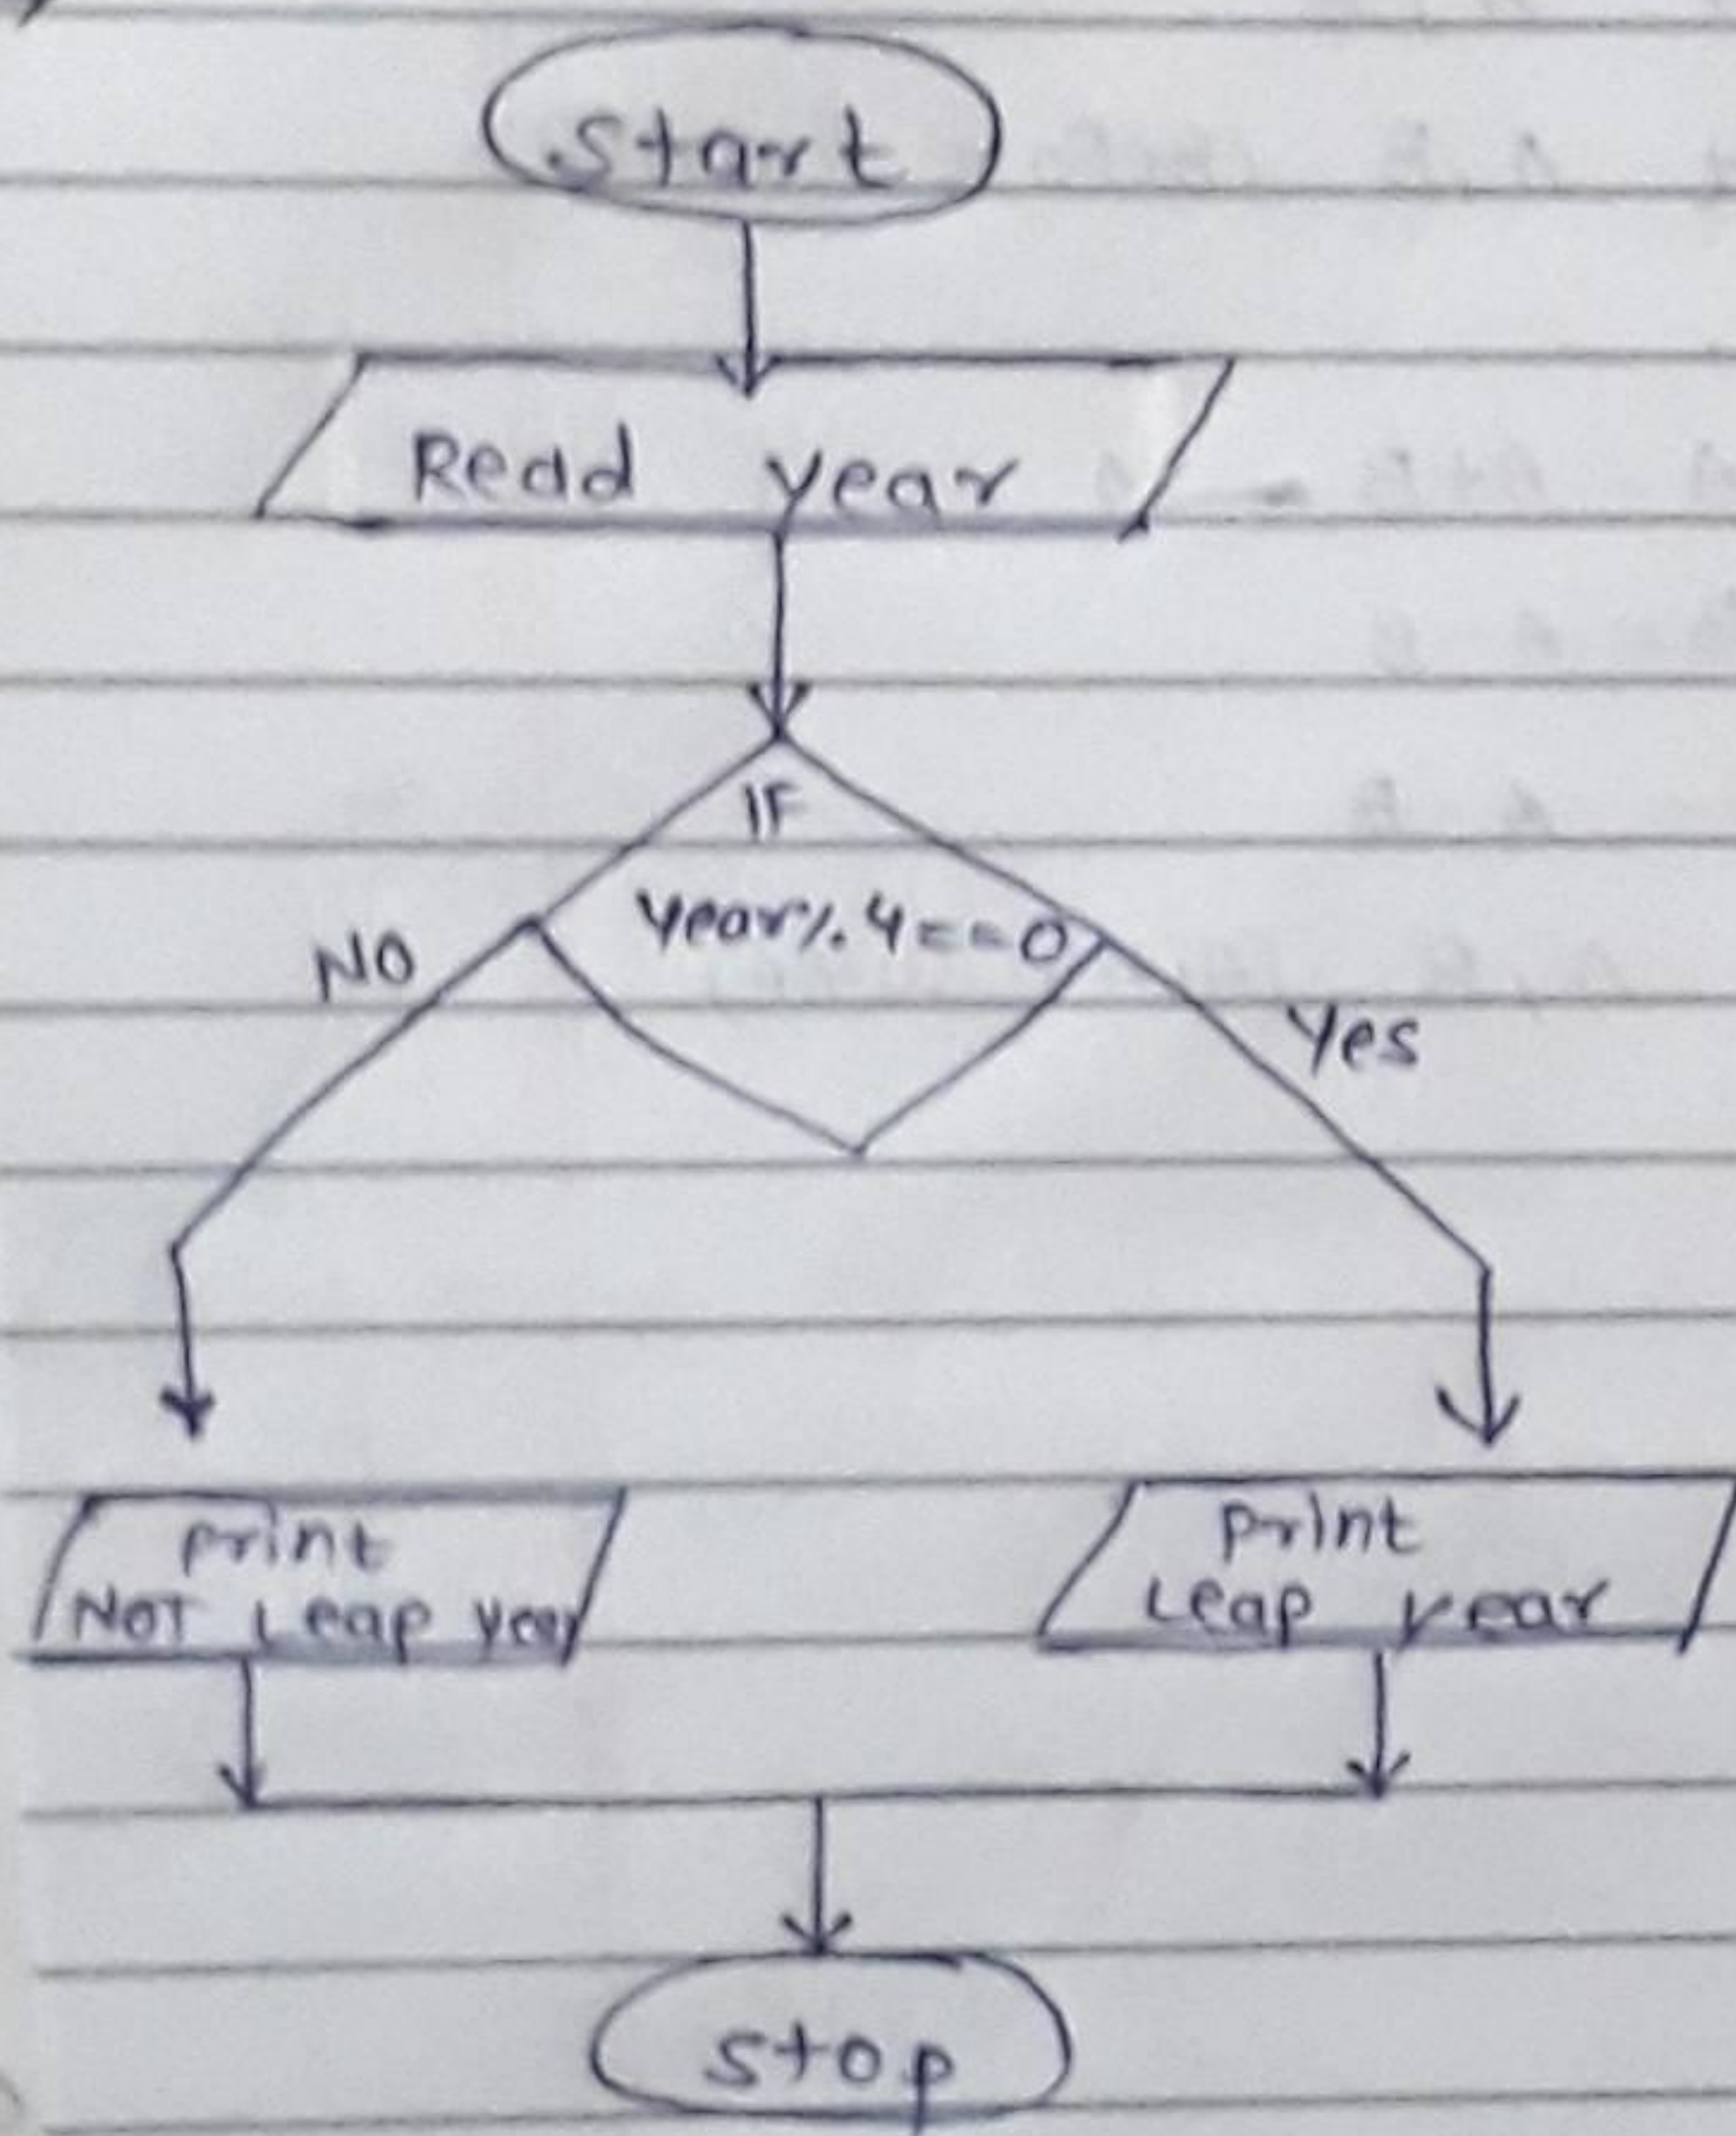 Start
Read year
IF
Year%4==0
NO
Yes
print
NOT Leap year
print
Leap year
stop